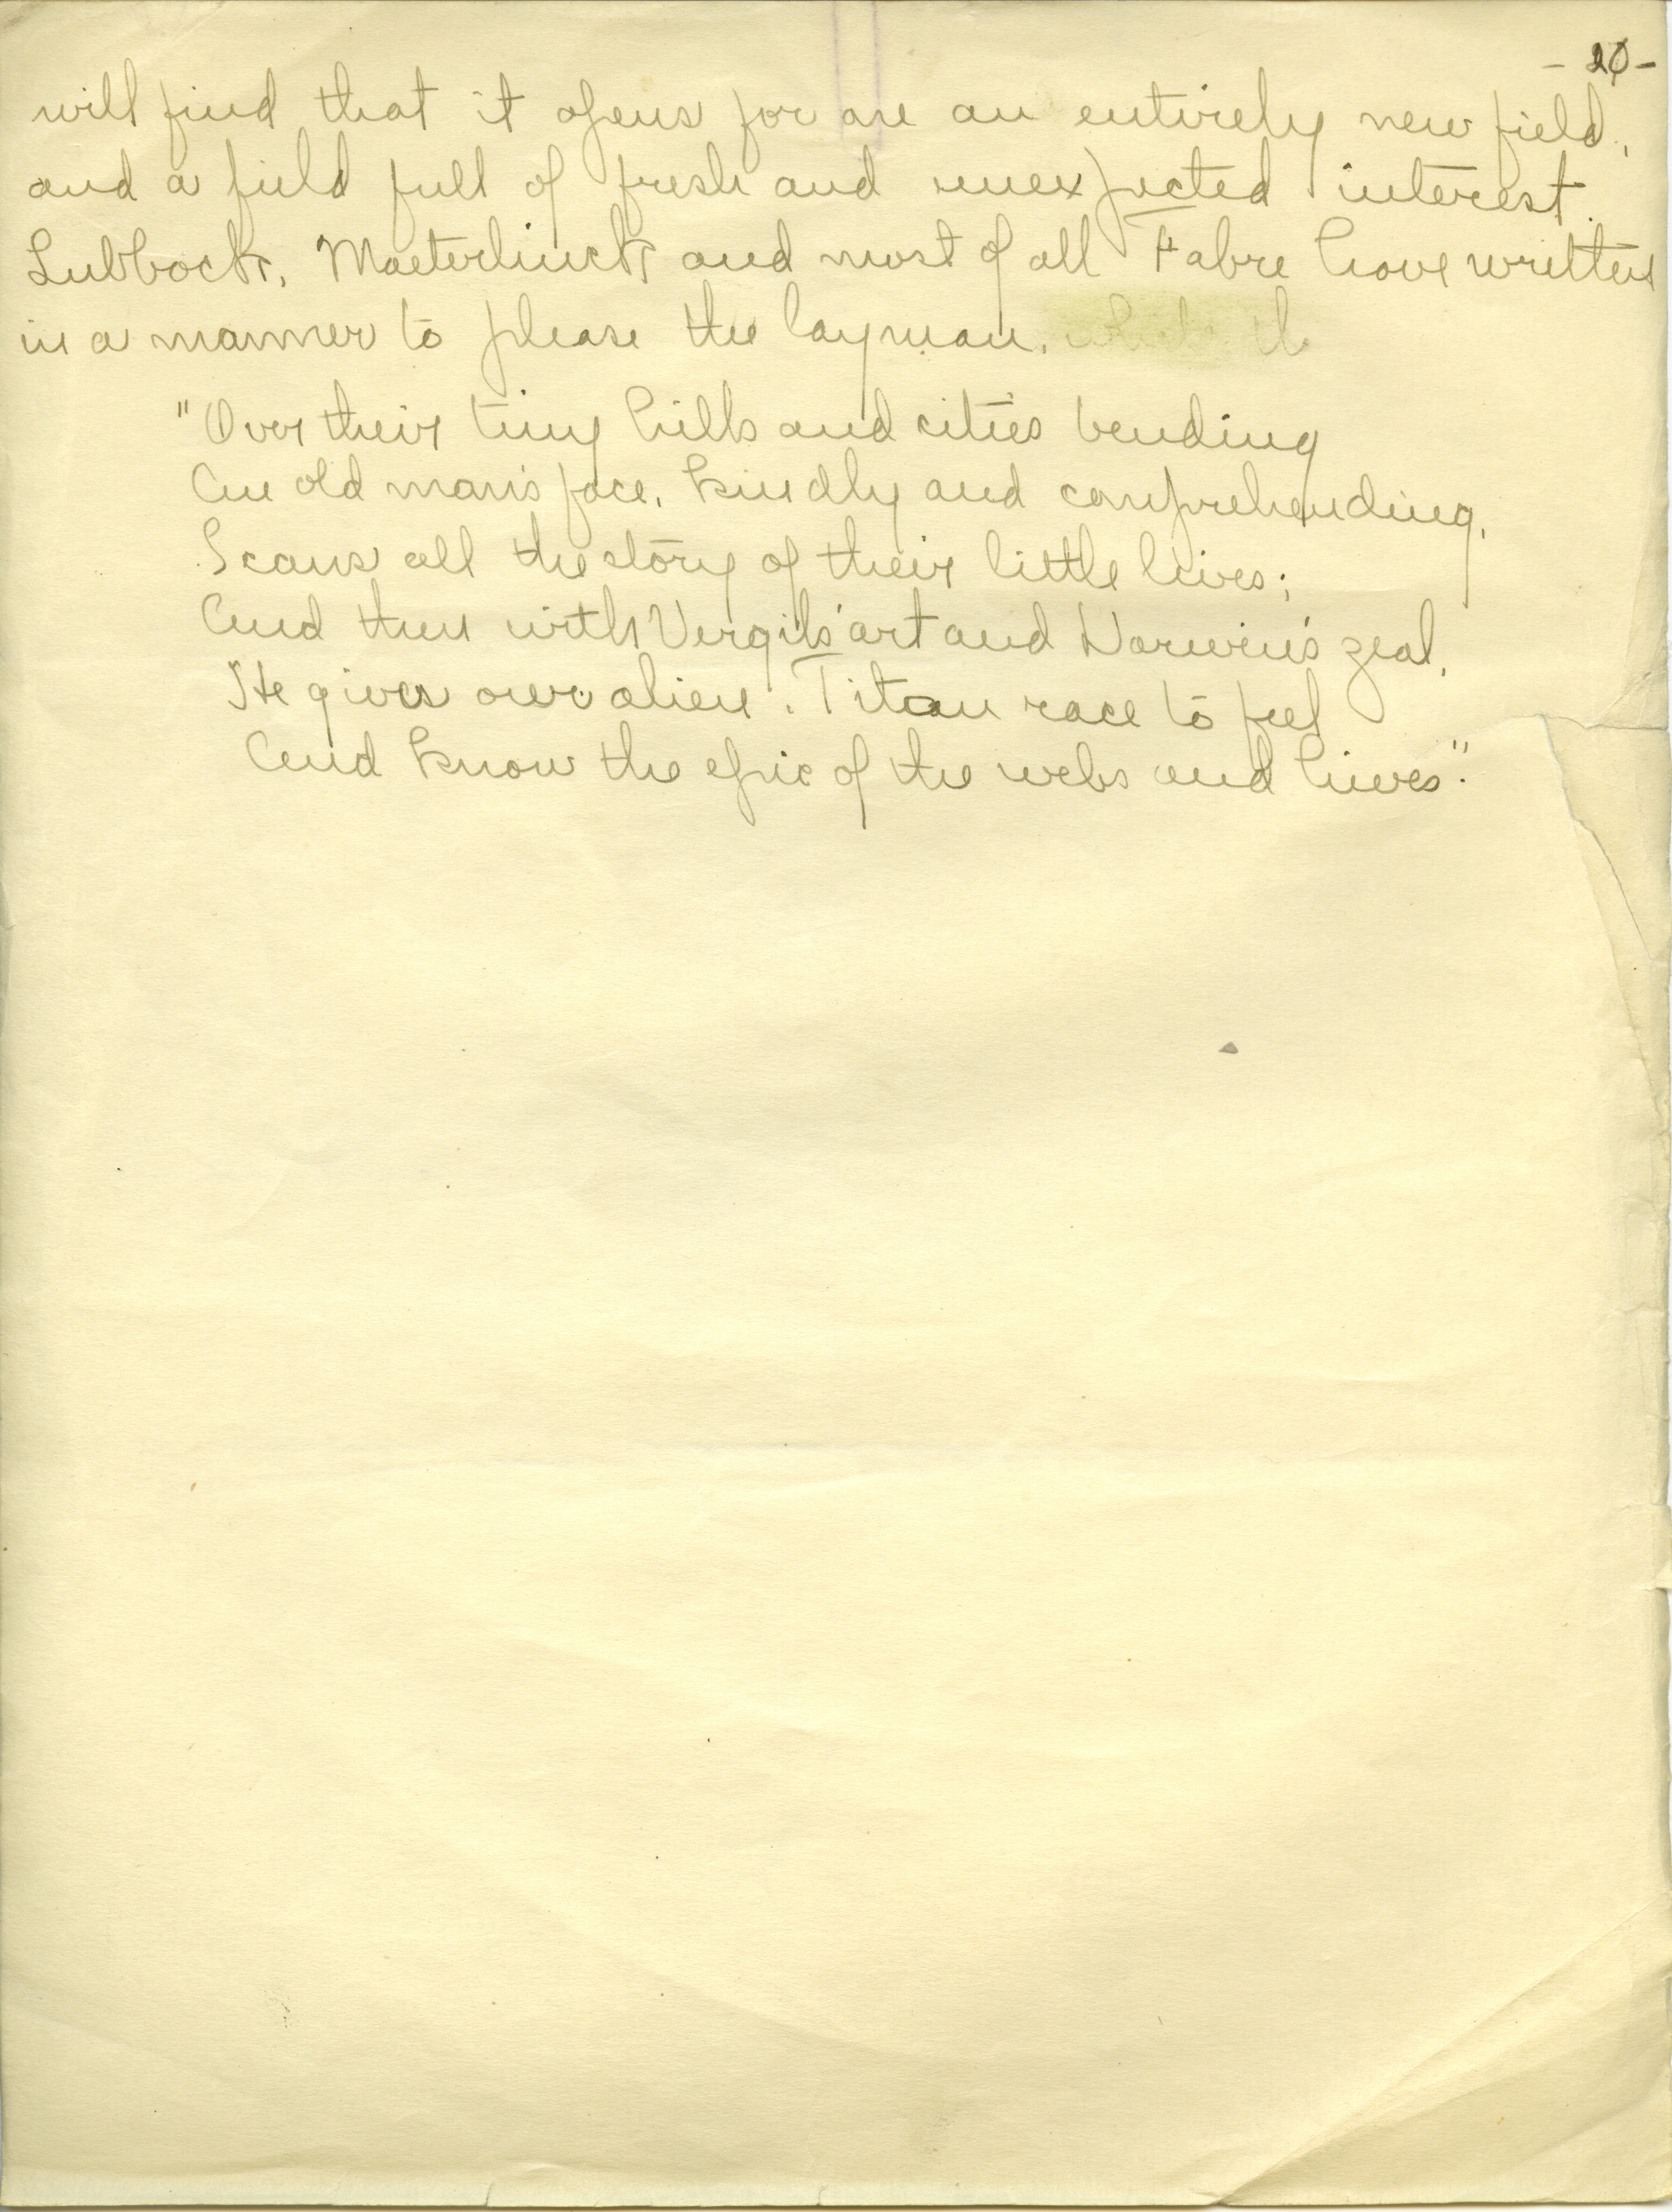 - 20 -
will find that it opens for one an entirely new field,
and a field full of fresh and unexpected interest.
Lubbock, Maeterlinck and most of all Fabre have written
in a manner to please the layman.
"Over their tiny hills and cities bending
An old man's face, kindly and comprehending,
Scans all the story of their little lives;
And then with Vergils' art and Darwin's zeal,
He gives our alien, Titan race to feel
And know the epic of the webs and hives".